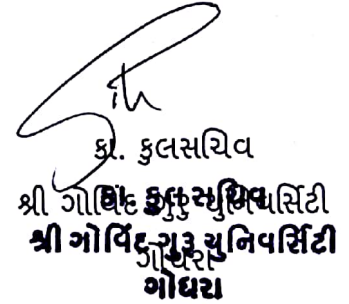 કા. કુલસચિવ
શ્રી ગોવિંદ ગુરુ યુનિવર્સિટી
ગોધરા
કા. કુલસચિવ
શ્રી ગોવિંદ ગુરૂ યુનિવર્સિટી
ગોધરા